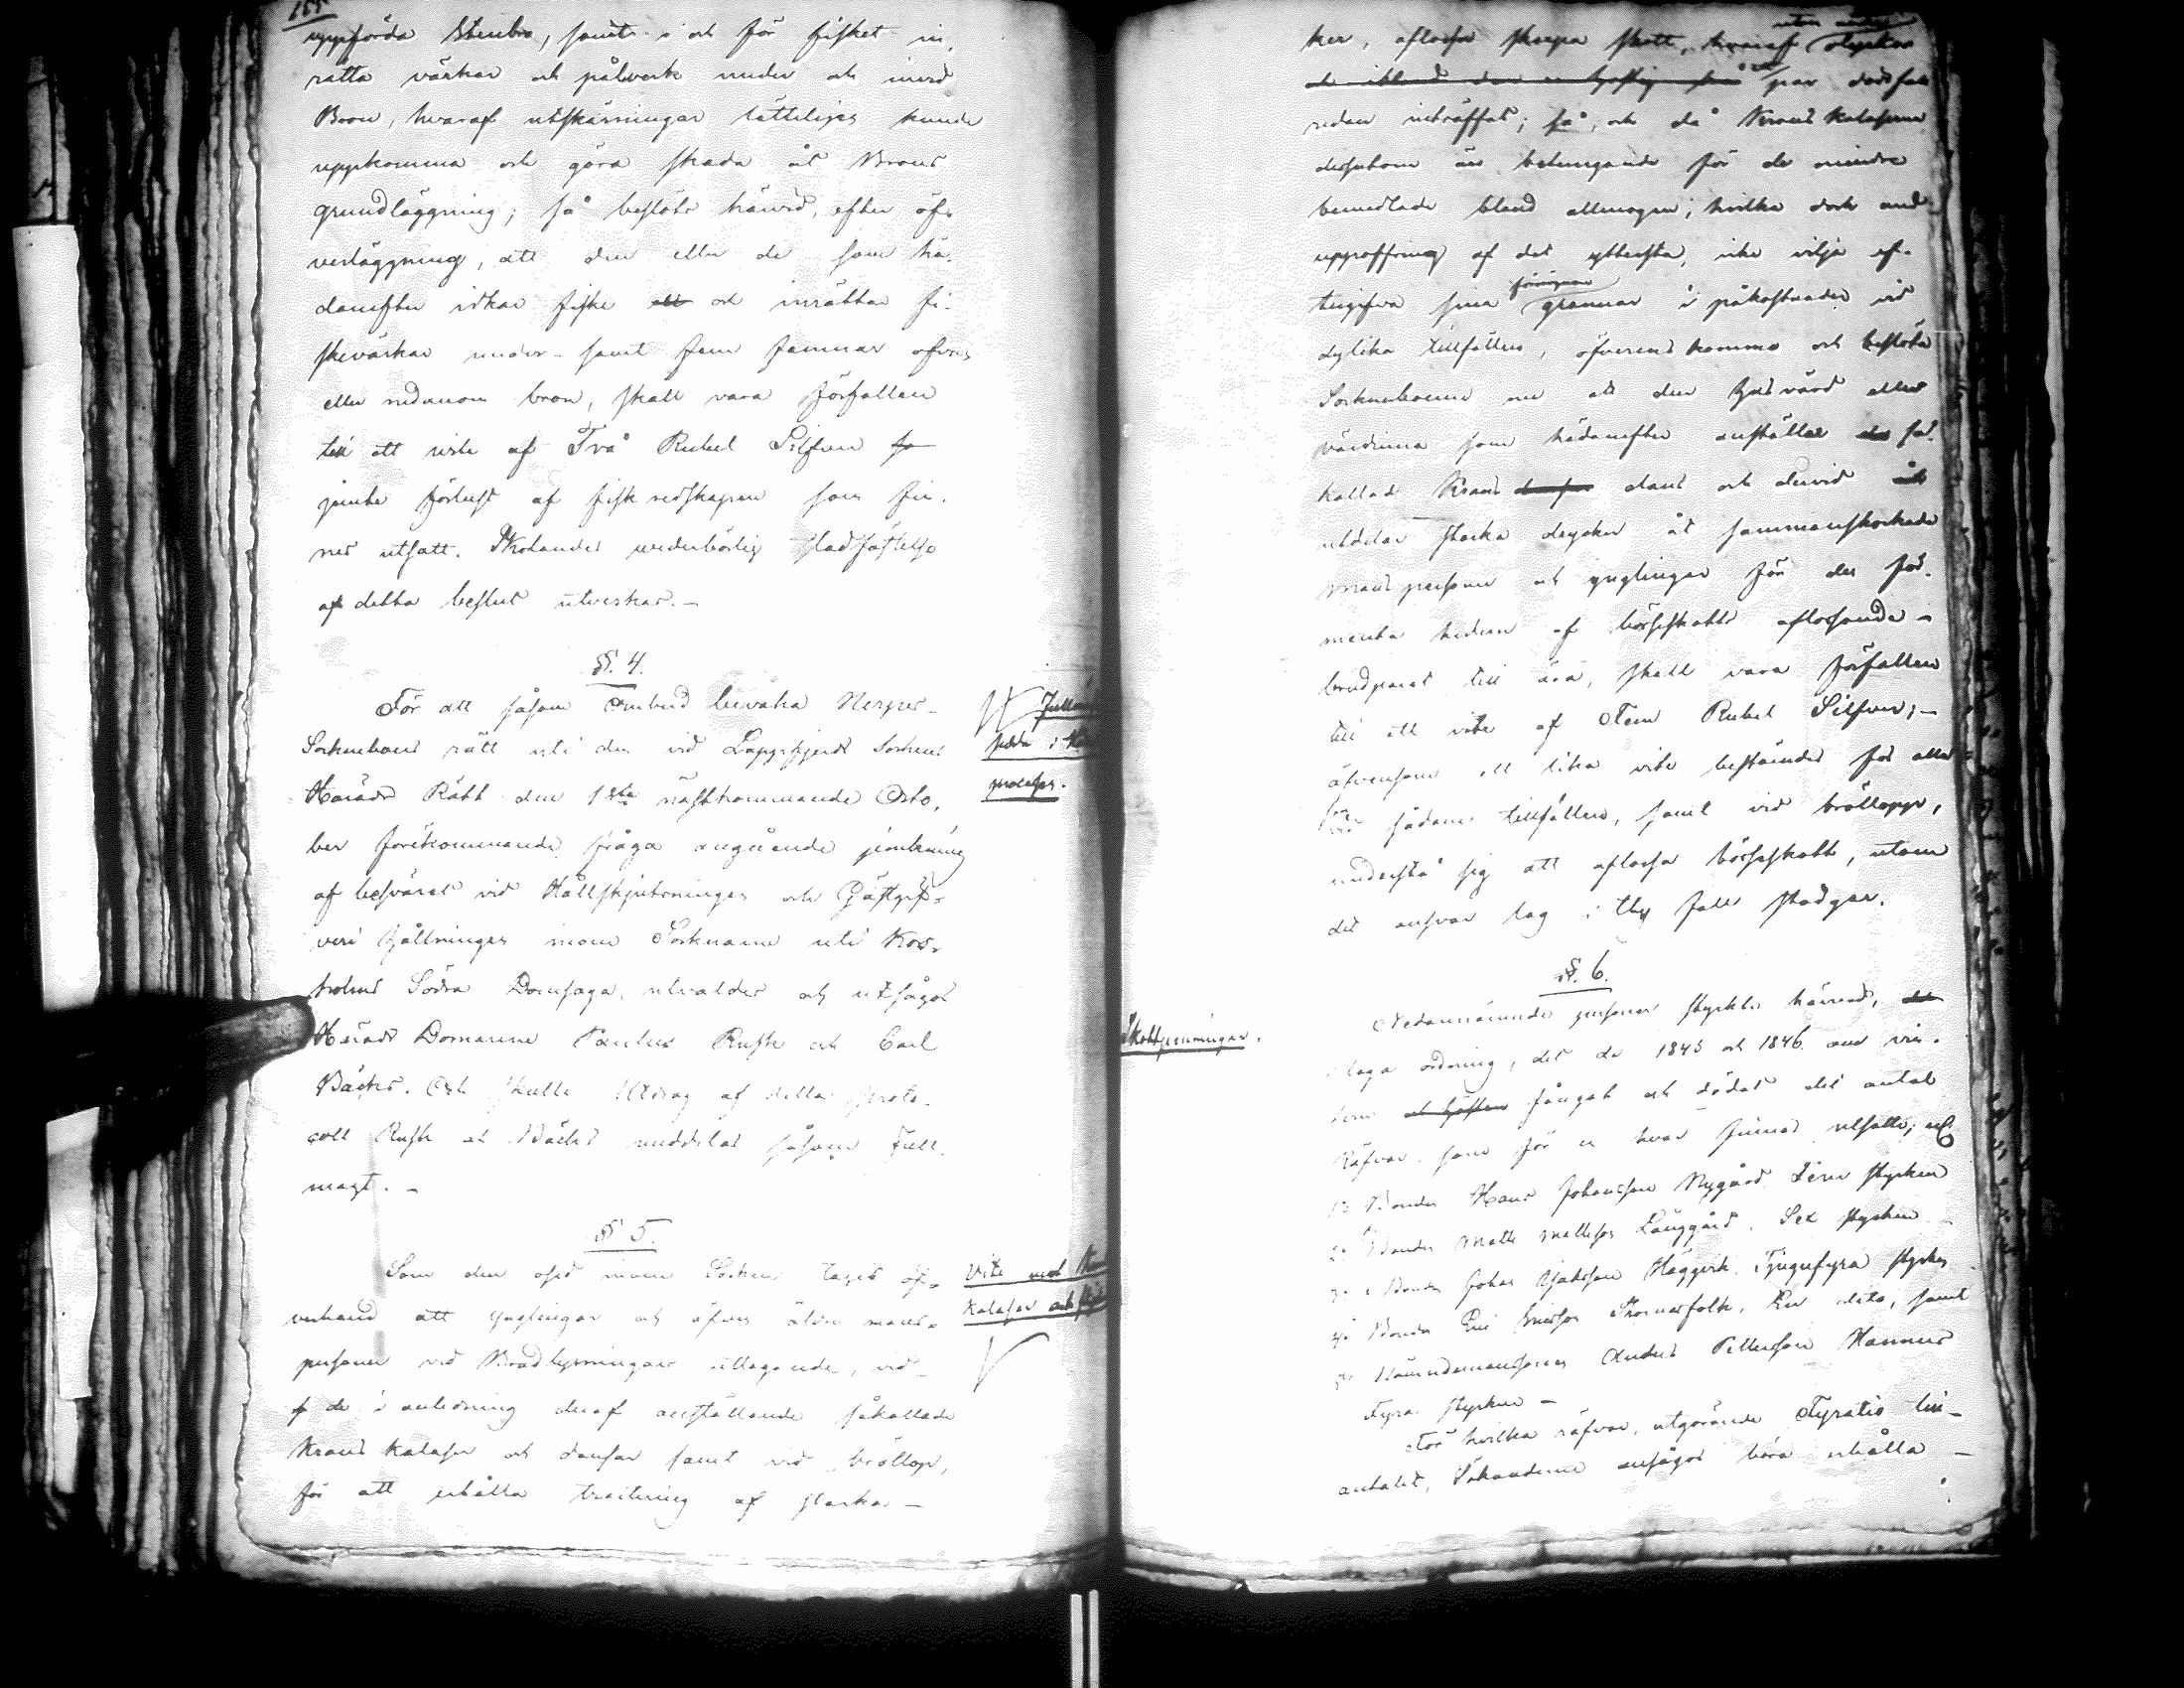 155
uppförda Stenbro, samt i och för fisket in
rätta värkar och pålverk under och invid
Bron, hvaraf utskärningar lätteligen kunde
uppkomma och göra skada åt Brons
grundläggning; så beslöts härvid, efter öf-
verläggning, att den eller de som hä-
danefter idkar fiske och inrätta fi-
skevärkar under- samt fem famnar ofvan
eller nedanom bron, skall vara förfallen
till ett vite af Två Rubel Silfver
jemte förlust af fiskredskapen som fin-
nes utsatt. Skolandes vederbörlig stadfästelse
af detta beslut utverkas.-
§. 4.
För att såsom Ombud bevaka Nerpes-
Sockneboers rätt uti den vid Lappfjerds Sockens
Härads Rätt den 1sta nästkommande Octo-
ber förekommande fråga angående jemkning
af besväret vid Hållskjutsningen och Gästgif-
veri hållningen inom Socknarne uti Kors-
holms Södra Domsaga, utvaldes och utsågos
Härads Domarene Paulus Rusk och Carl
Bäcks. Och skulle Utdrag af detta Proto-
coll Rusk och Bäcks meddelas såsom Full-
magt. -
Full
i
process.
§ 5.
Som den osed inom Socken tagit öf-
verhand att ynglingar och äfven äldre mans-
personer vid Brudlysningars uttagande, vid
de i anledning deraf anställande såkallade
Krans kalaser och dansar samt vid bröllop,
för att erhålla traktering af starka -
Vite mot
Kalaser och
ker, aflossa skarpa skott, hvaraf olyckor
par dödsfall
redan inträffat; så, och då Krans kalaserne
dessutom äro betungande för de mindre
bemedlade bland allmogen, hvilka dock med
uppoffring af det yttersta, icke vilja ef-
förmögnare
tergifva sina grannar i påkostnader vid
dylika tillfällen, öfverens kommo och beslöto
Sockneboerne nu att den husvärd eller
värdinna som hädanefter anställer så-
kallad Krans dans och dervid
utdelar starka drycker åt sammanskockade
mans personer och ynglingar för den för-
menta hedern af bösseskotts aflossande -
brudparet till ära, skall vara förfallen
till ett vite af Fem Rubel Silfver;-
äfvensom ett lika vite bestämdes för alla
som
vid sådane tillfällen, samt vid bröllopp,
understå sig att aflossa bösseskott, utom
det ansvar lag i thy fall stadgar.
§. 6.
Skottpenningar.
Nedannämnde personer styrkte härvid,
i laga ordning, det de 1845 och 1846 om vin-
tern fångat och dödat det antal
Räfvar som för en hvar finnas utsatte; neml.
1o Bonden Hans Johansson Nygård Fem stycken
2o Bonden Matts Mattsson Långgård, Sex stycken
3o Bonden Johan Jakobsson Häggvik, Tjugufyra stycken
4o Bonden Eric Ericsson Skomarsfolk, En dito, samt
5o Nämndemanssonen Anders Pettersson Hannus
Fyra stycken -
För hvilka räfvar, utgörande Fyratio till-
antalet, Sökanderne ansågos böra erhålla -